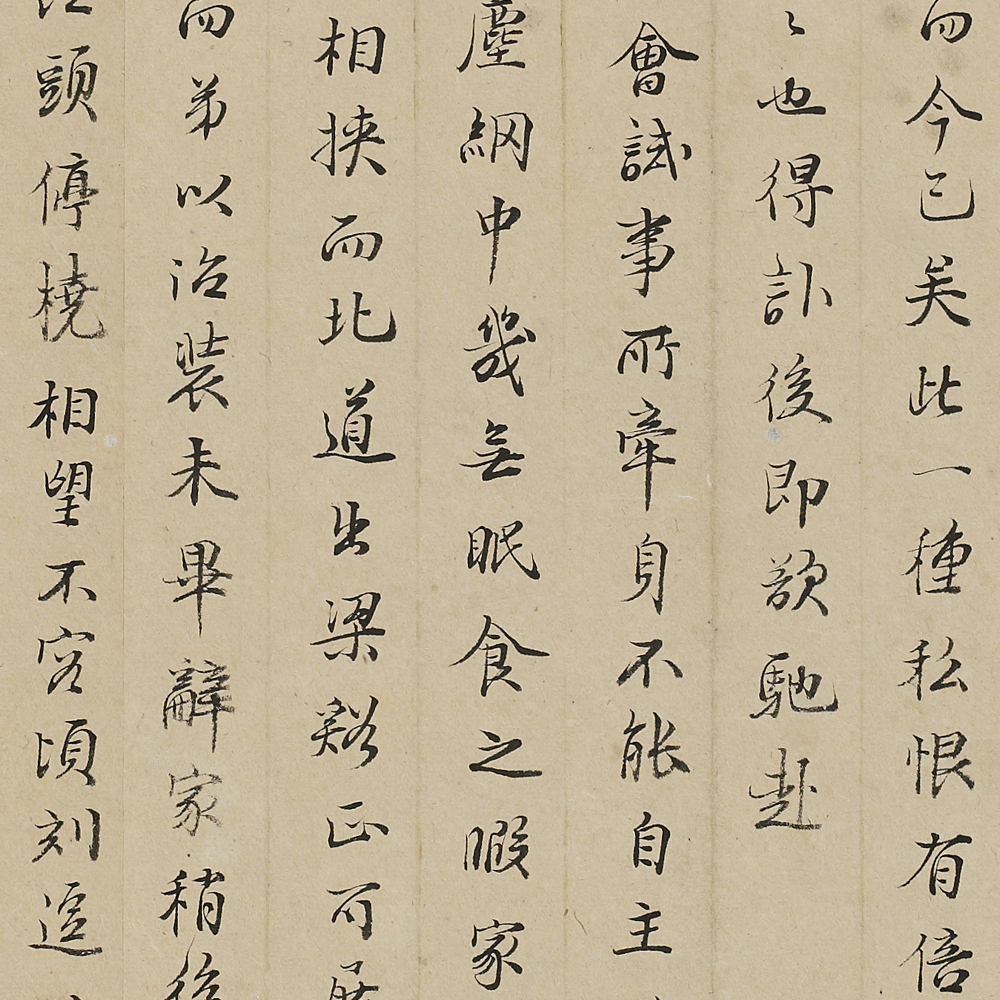 而今已矣此一種私恨有倍
々也得訃後即欲馳赴
會試事所牽身不能自主
塵網中幾無眠食之暇家
相挾而北道出梁谿正可
而弟以治裝未畢辭家稍後
頭停橈相望不容頃刻逗